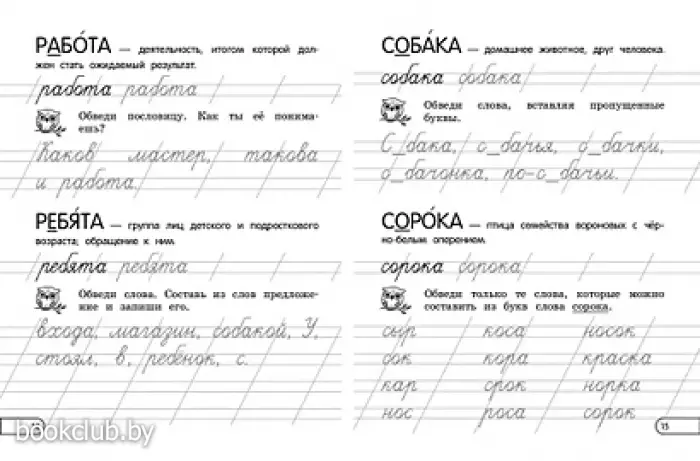 РАБО́ТА — деятельность, итогом которой дол-
жен стать ожидаемый результат.
работа работа
Обведи пословицу. Как ты её понима-
ешь?
Каков мастер, такова
и работа.
РЕБЯ́ТА — группа лиц детского и подросткового
возраста; обращение к ним.
ребята ребята
Обведи слова. Составь из слов предложе-
ние и запиши его.
входа, магазин, собакой, У,
стоял, в, ребёнок, с.
СОБА́КА — домашнее животное, друг человека.
собака собака
Обведи слова, вставляя пропущенные
буквы.
С_бака, с_бачья, с_бачки,
с_бачонка, по-с_бачьи.
СОРО́КА — птица семейства вороновых с чёр-
но-белым оперением.
сорока сорока
Обведи только те слова, которые можно
составить из букв слова сорока.
сыр коса носок
сок кора краска
кар срок норка
нос роса сорок
bookclub.by
15